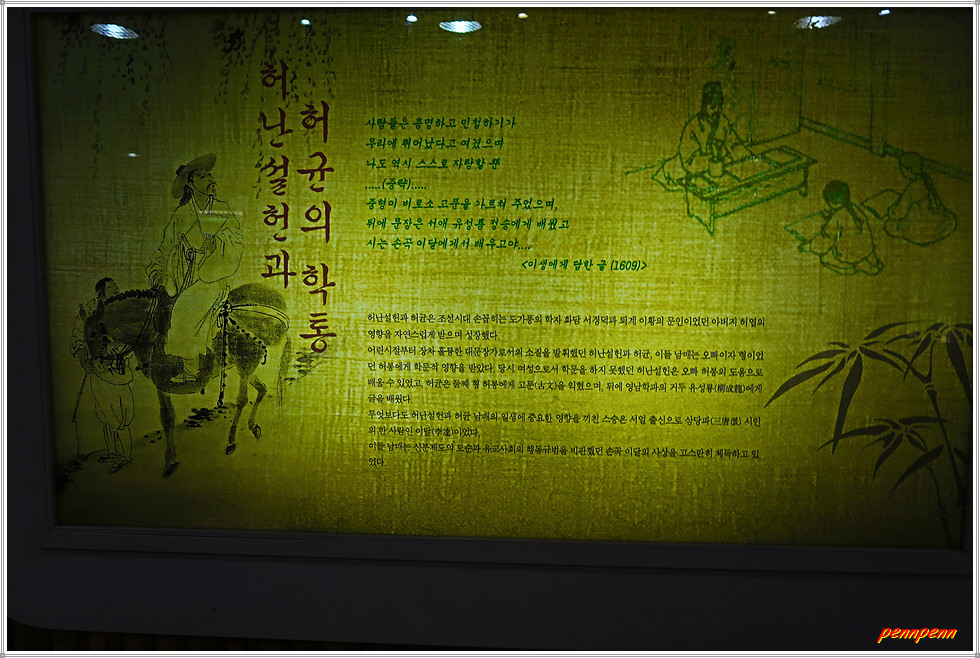 허난설헌과
허균의 학통
사람들은 총명하고 민첩하기가
무리에 뛰어났다고 여겼으며
나도 역시 스스로 자랑할 뿐
.....(중략).....
중형이 비로소 고문을 가르쳐 주었으며,
뒤에 문장은 서애 유성룡 정승에게 배웠고
시는 손곡 이달에게서 배우고야....
<이생에게 답한 글 (1609)>
허난설헌과 허균은 조선시대 손꼽히는 도가풍의 학자 화담 서경덕과 퇴계 이황의 문인이었던 아버지 허엽의
영향을 자연스럽게 받으며 성장했다.
어린시절부터 장차 훌륭한 대문장가로서의 소질을 발휘했던 허난설헌과 허균, 이들 남매는 오빠이자 형이었
던 허봉에게 학문적 영향을 받았다. 당시 여성으로서 학문을 하지 못했던 허난설헌은 오빠 허봉의 도움으로
배울 수 있었고, 허균은 둘째 형 허봉에게 고문(古文)을 익혔으며, 뒤에 영남학파의 거두 유성룡(柳成龍)에게
글을 배웠다.
무엇보다도 허난설헌과 허균 남매의 일생에 중요한 영향을 끼친 스승은 서얼 출신으로 삼당파(三唐派) 시인
의 한 사람인 이달(李達)이었다.
이들 남매는 신분제도의 모순과 유교사회의 행동규범을 비판했던 손곡 이달의 사상을 고스란히 체득하고 있
었다.
pennpenn